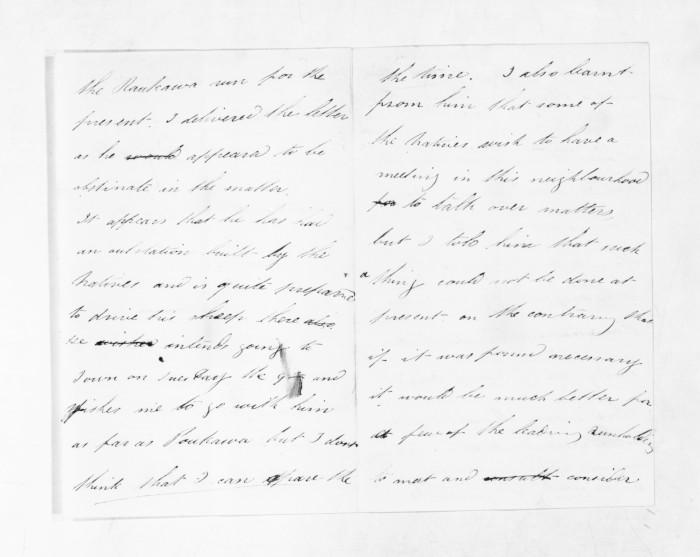 the Raukawa run for the
present. I delivered the letter
as he would appeared to be
obstinate in the matter.
It appears that he has had
an outstation built by the
Natives and is quite prepared
to drive his sheep there also
he wishes intends going to
Town on Tuesday the and
wishes me to go with him
as far as Poukawa but I dont
think that I can spare the
the time. I also learnt
from him that some of
the Natives wish to have a
meeting in this neighbourhood
for to talk over matters,
but I told him that such
a thing could not be done at
present on the contrary that
if it was found necessary
it would be much better for
a few of the leading
to meet and consult consider